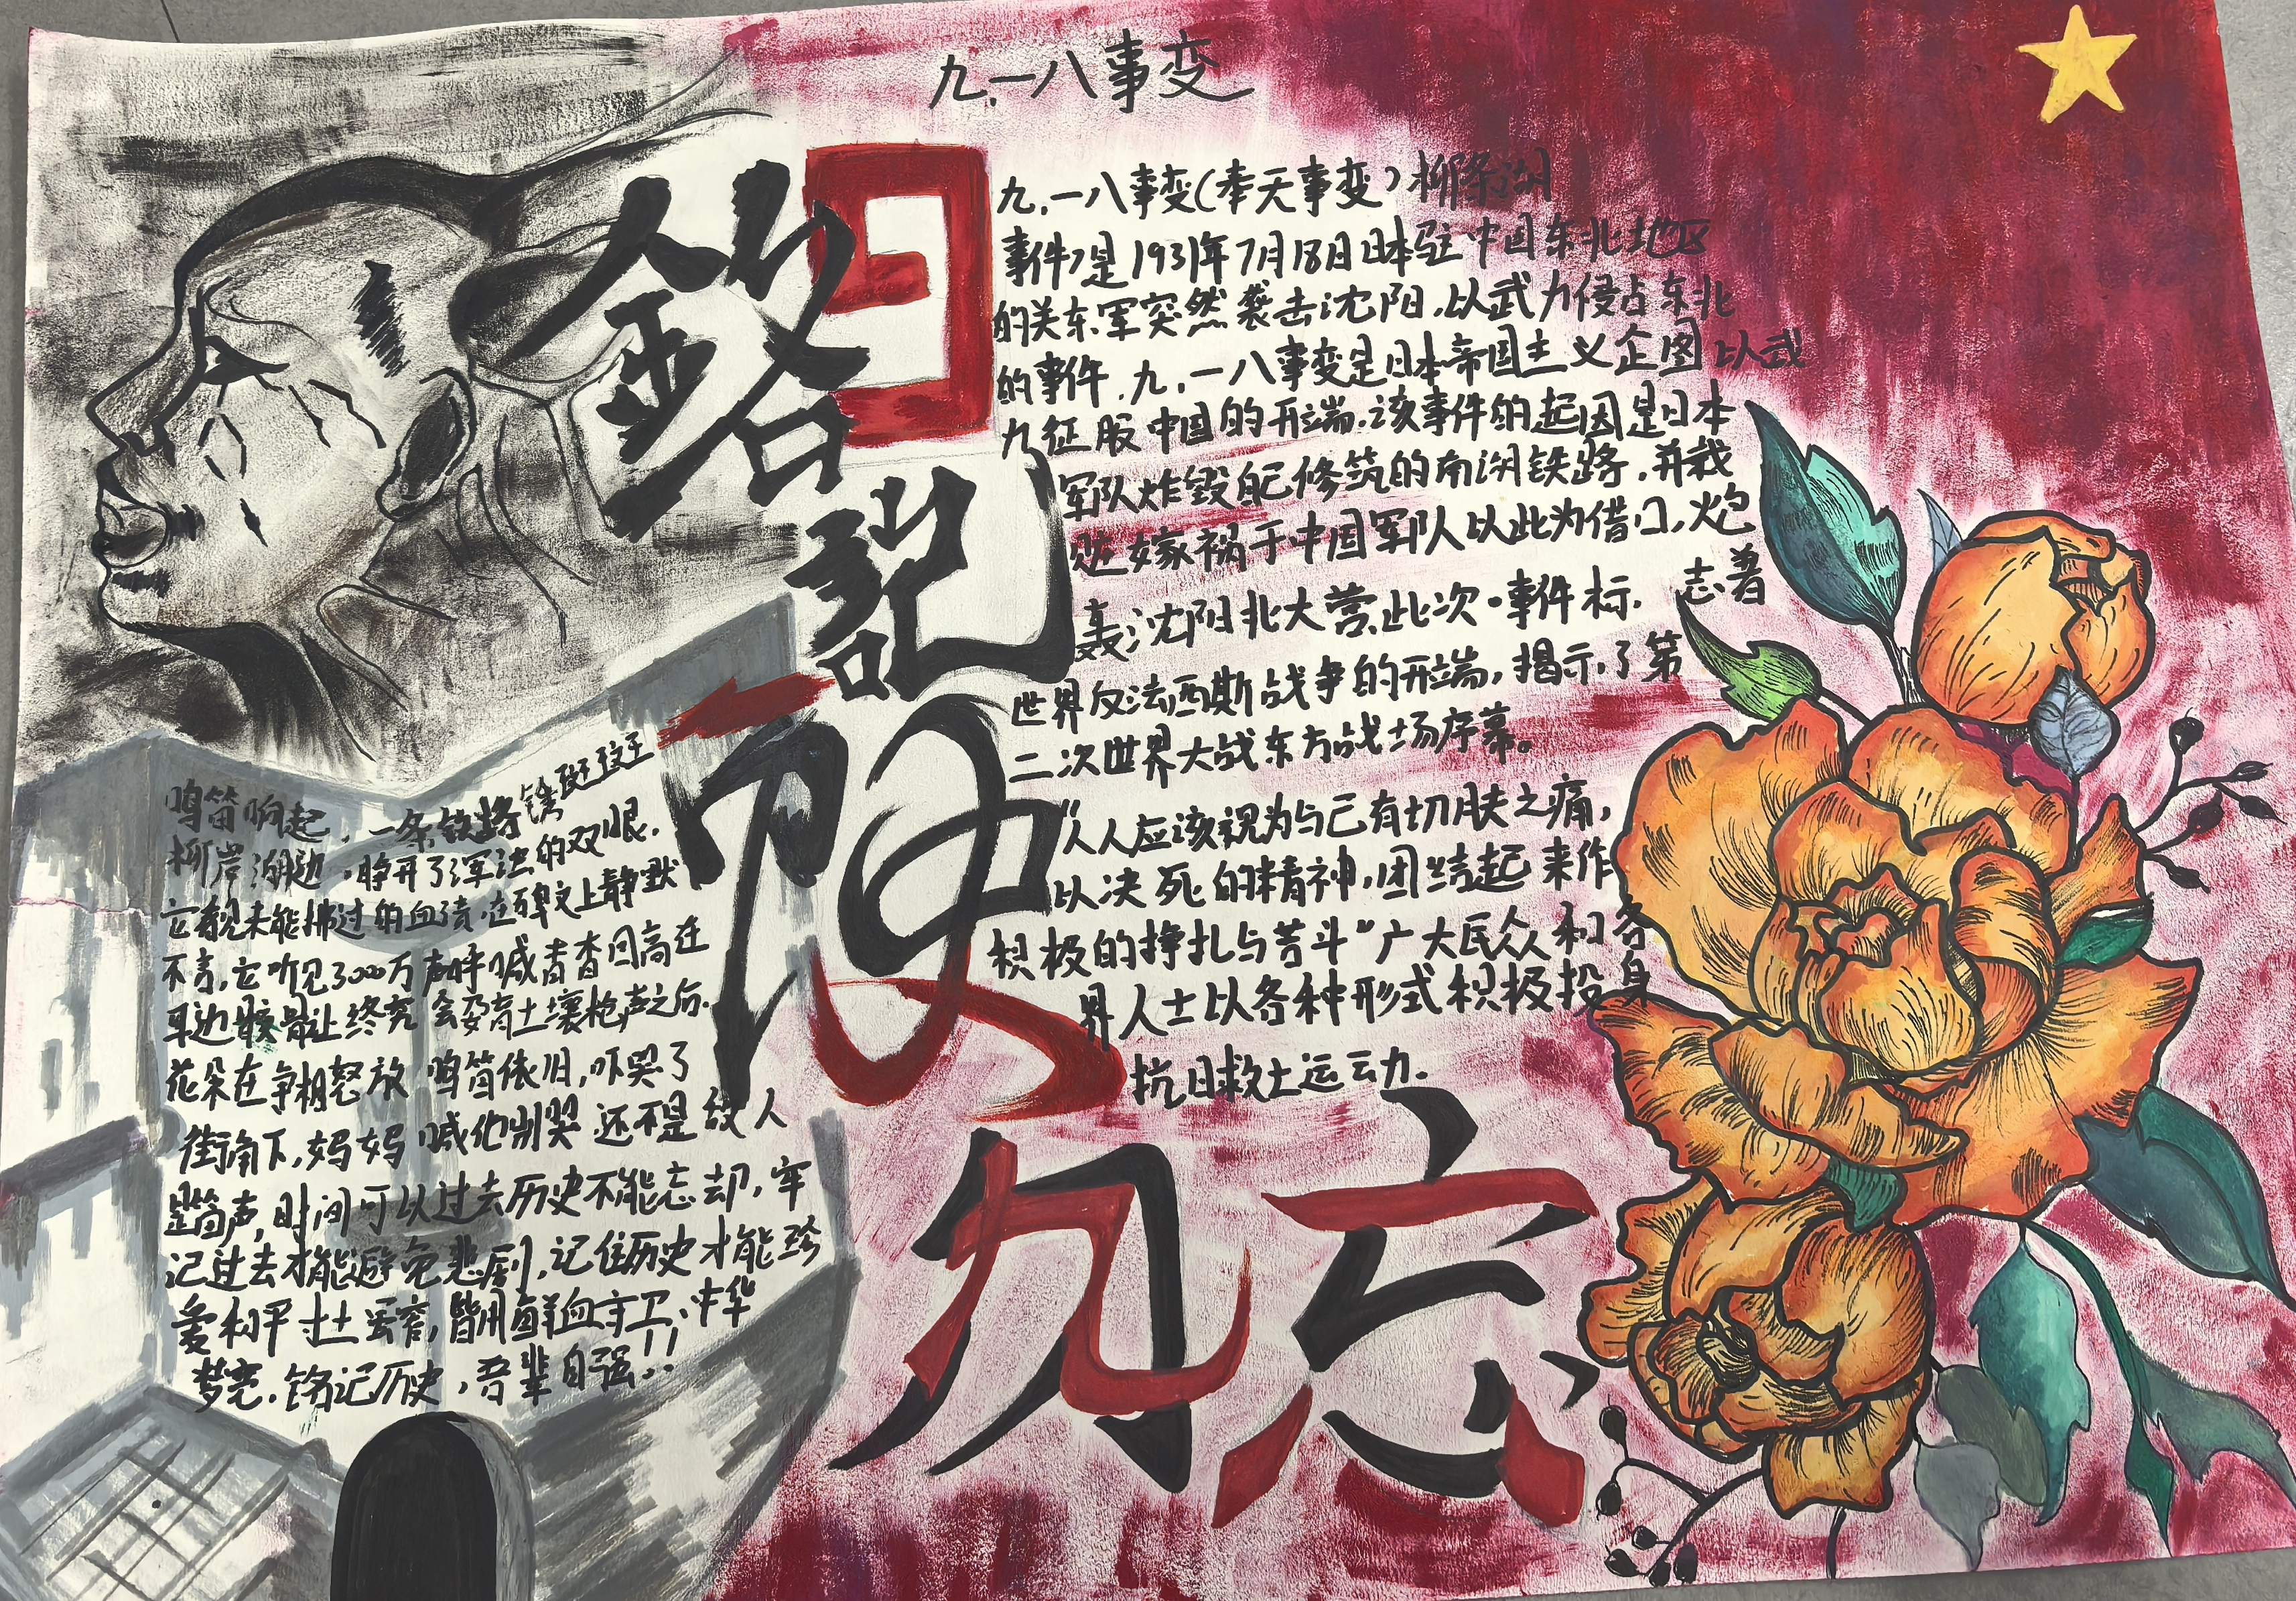 九.一八事变
铭记
历史
勿忘
九.一八事变(奉天事变)柳条湖
事件)是1931年7月18日日本驻中国东北地区
的关东军突然袭击沈阳,以武力侵占东北
的事件.九.一八事变是日本帝国主义企图以武
力征服中国的开端.该事件的起因是日本
军队炸毁自己修筑的南湖铁路,并栽
赃嫁祸于中国军队以此为借口,炮
轰沈阳北大营.此次·事件标.志着
世界反法西斯战争的开端,揭示了第
二次世界大战东方战场序幕。
“人人应该视为与己有切肤之痛,
以决死的精神,团结起来作
积极的挣扎与苦斗”广大民众和各
界人士以各种形式积极投身
抗日救土运动.
鸣笛响起,一条铁路锈斑斑
柳岸湖边,睁开了浑浊的双眼.
它 未能拂过的血渍.在碑文上静默
不言,它听见3000万声呼喊 回高在
耳边 让终究会 土壤枪声之后.
花朵在争相怒放 鸣笛依旧,吓哭了
街角下,妈妈喊他别哭 还不是故人
笛声,时间可以过去历史不能忘却,牢
记过去才能避免悲剧,记住历史才能珍
爱和平寸土 ,皆用鲜血守卫,中华
梦 .铭记历史,吾辈自强!!